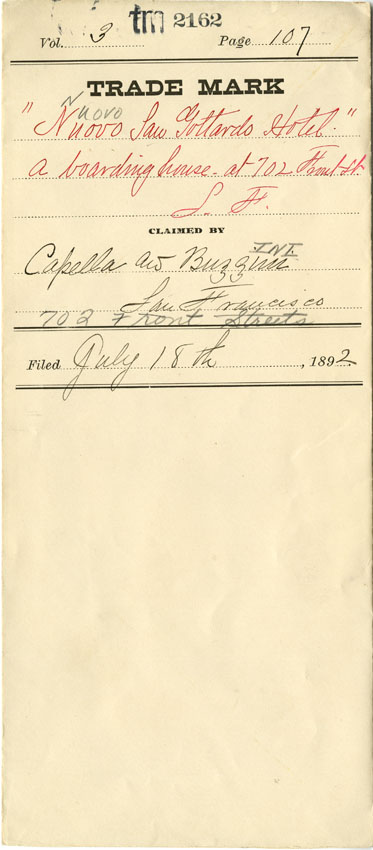 tm 2162
Vol. 3 Page 107
TRADE MARK
Nuovo
"Nuovo San Gottardo Hotel."
a boarding house at 702 Front St.
S. F.
CLAIMED BY
INI
Capella and Buzzini
San Francisco
702 Front Streets
Filed July 18th, 1892